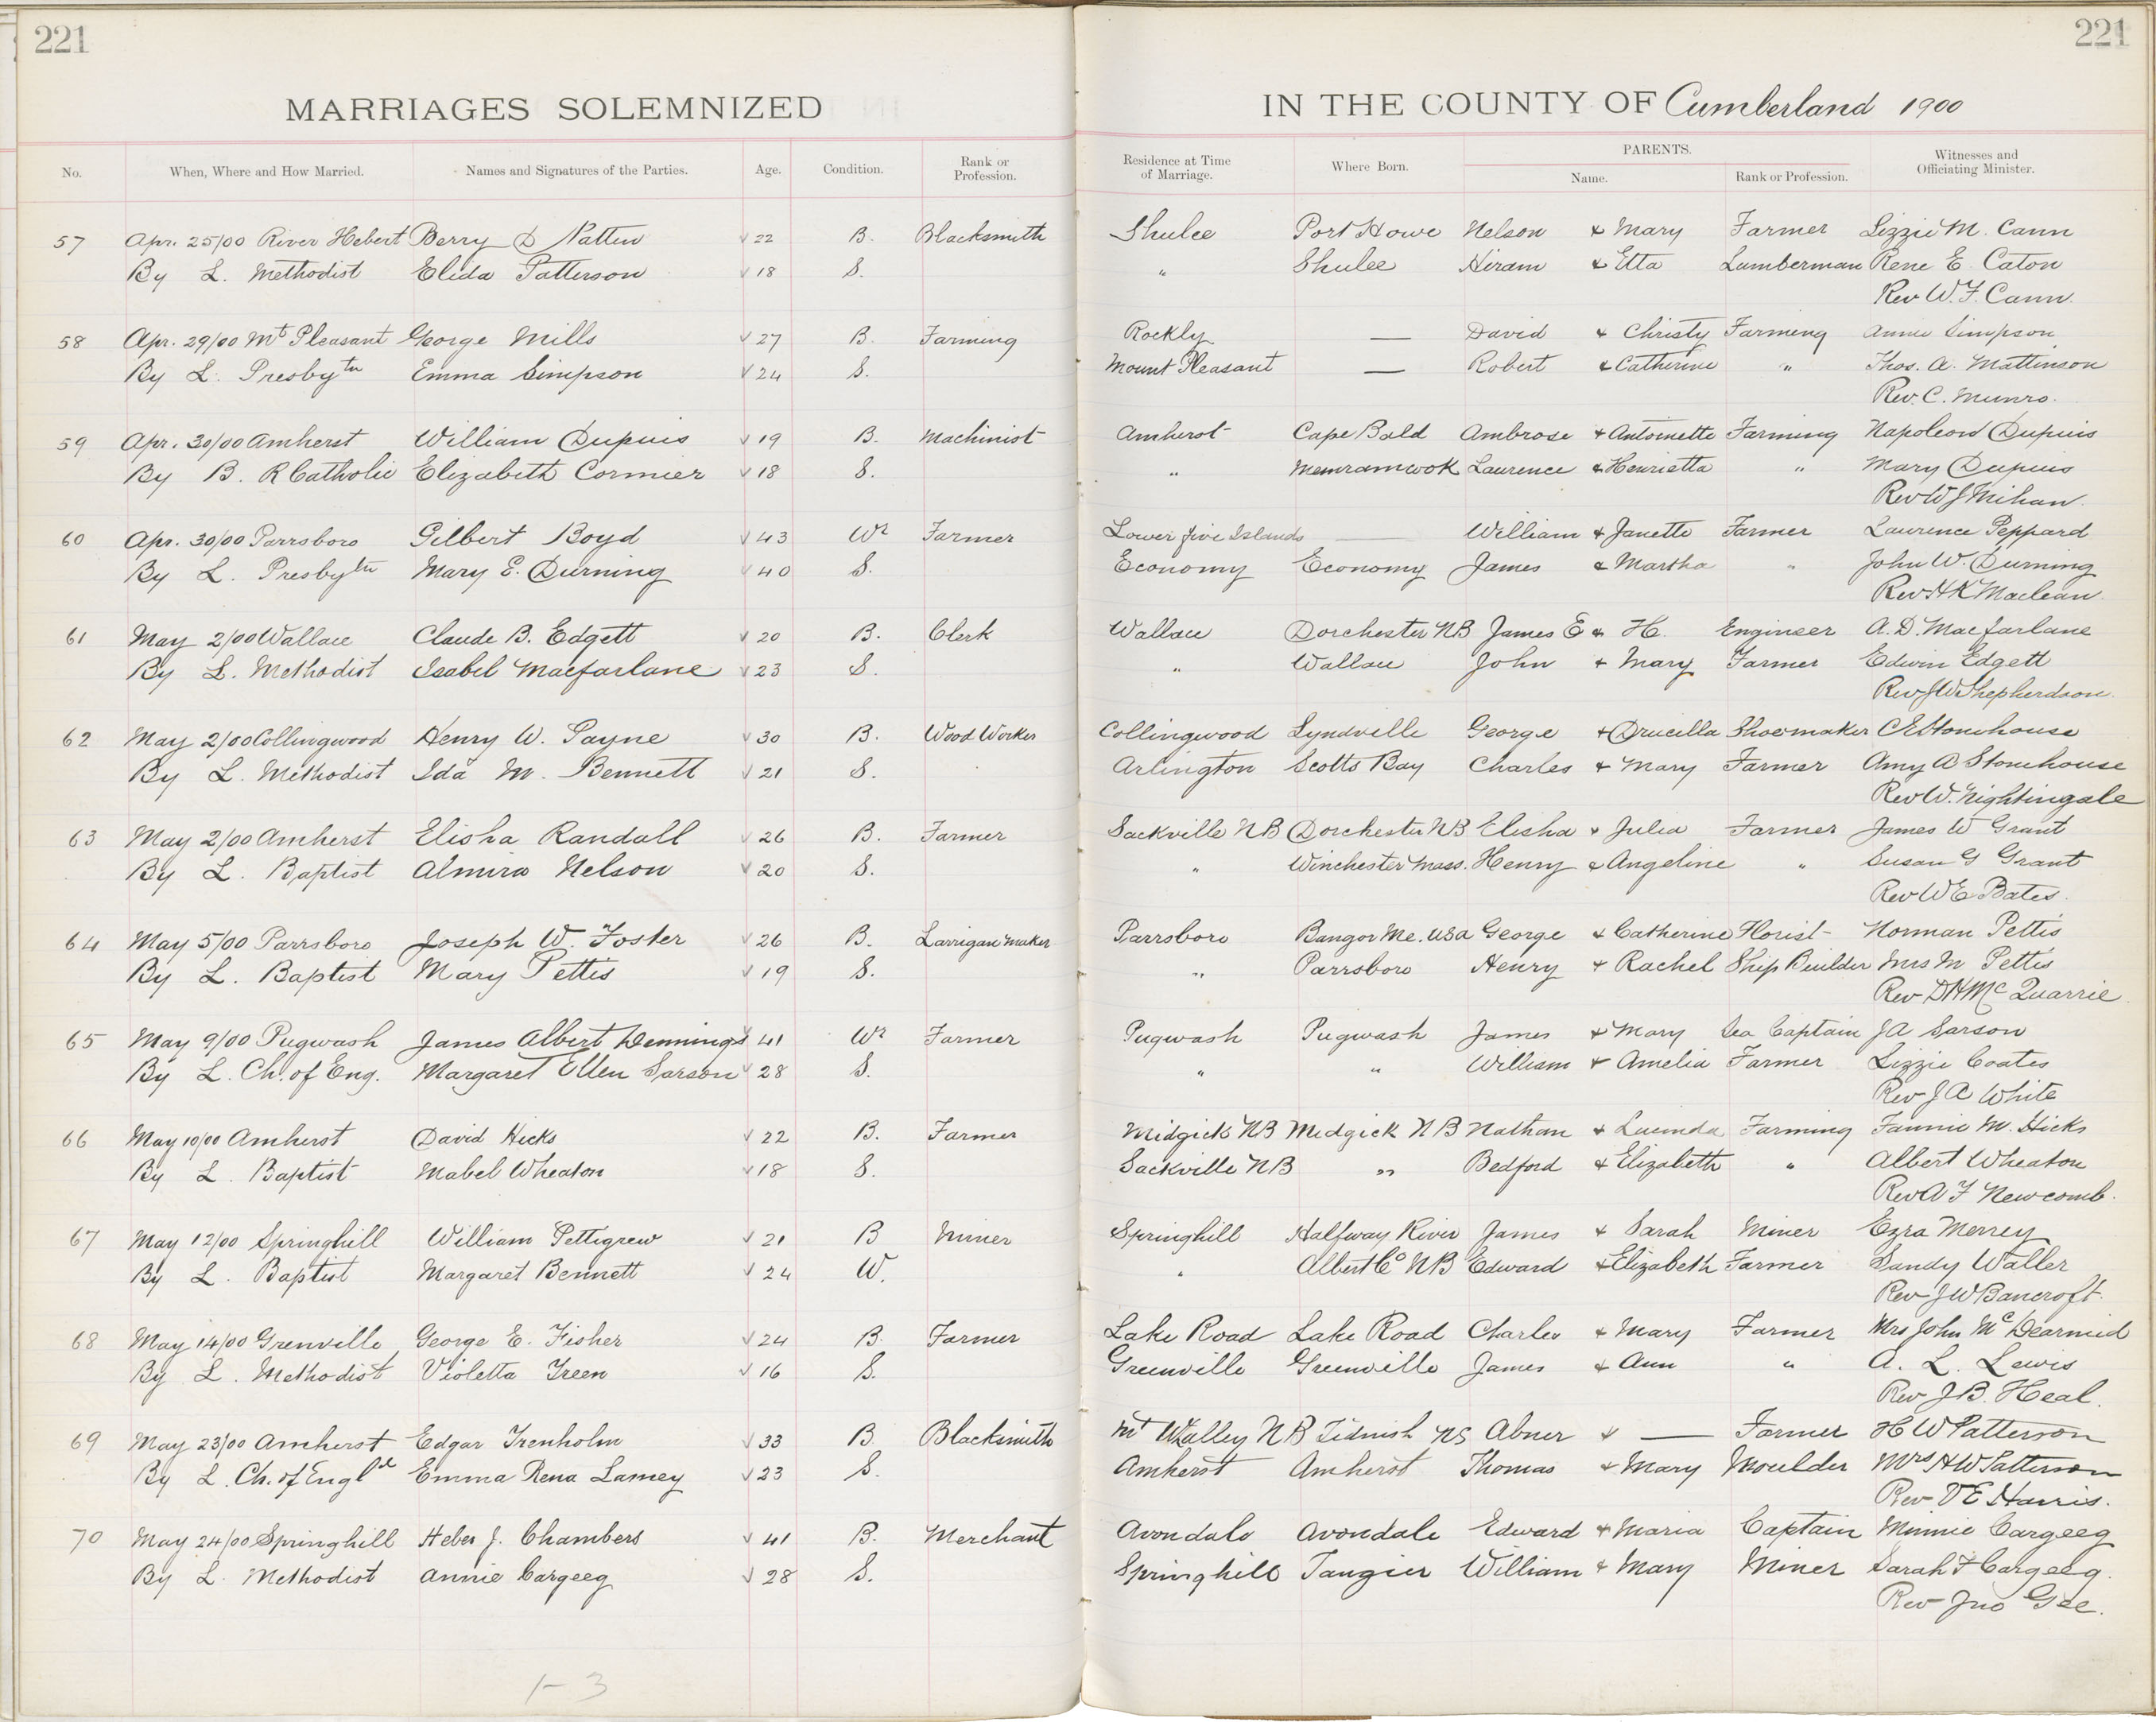 221
221
MARRIAGES SOLEMNIZED IN THE COUNTY OF Cumberland 1900
No. When, Where and How Married. Names and Signatures of the Parties. Age. Condition. Rank or Profession. Residence at Time of Marriage. Where Born. PARENTS. Name. Rank or Profession. Witnesses and Officiating Minister.
57 Apr. 25/00 River Hebert Berry D Patten 22 B. Blacksmith Shulee Port Howe Nelson & Mary Farmer Lizzie M. Cann
By L. Methodist Elida Patterson 18 S. " Shulee Hiram & Etta Lumberman Rene E Caton
Rev W. F. Cann.
58 Apr. 29/00 Mt Pleasant George Mills 27 B. Farming Rockly — David & Christy Farming Annie Simpson
By L. Presbytn Emma Simpson 24 S. Mount Pleasant — Robert & Catherine " Thos. A. Mattinson
Rev. C. Munro.
59 Apr. 30/00 Amherst William Dupuis 19 B. Machinist Amherst Cape Bald Ambrose & Antoinette Farming Napoleon Dupuis
By B. R Catholic Elizabeth Cormier 18 S. " Memramcook Laurence & Henrietta " Mary Dupuis
Rev W J Mihan.
60 Apr. 30/00 Parrsboro Gilbert Boyd 43 Wr Farmer Lower five Islands — William & Janette Farmer Laurence Peppard
By L. Presbytn Mary E. Durning 40 S. Economy Economy James & Martha " John W. Durning
Rev H K Maclean.
61 May 2/00 Wallace Claude B. Edgett 20 B. Clerk Wallace Dorchester NB James E & H. Engineer A. D. Macfarlane
By L. Methodist Isabel Macfarlane 23 S. " Wallace John & Mary Farmer Edwin Edgett
Rev J W Shepherdson.
62 May 2/00 Collingwood Henry W. Payne 30 B. Wood Worker Collingwood Lyndville George & Drucilla Shoemaker C E Stonehouse
By L. Methodist Ida M. Bennett 21 S. Arlington Scotts Bay Charles & Mary Farmer Amy A Stonehouse
Rev W. Nightingale
63 May 2/00 Amherst Elisha Randall 26 B. Farmer Sackville NB Dorchester NB Elisha & Julia Farmer James W Grant
By L. Baptist Almira Nelson 20 S. " Winchester Mass. Henry & Angeline " Susan G Grant
Rev W E Bates.
64 May 5/00 Parrsboro Joseph W. Foster 26 B. Larrigan maker Parrsboro Bangor Me. USA George & Catherine Florist Norman Pettis
By L. Baptist Mary Pettis 19 S. " Parrsboro Henry & Rachel Ship Builder Mrs M Pettis
Rev D H Mc Quarrie
65 May 9/00 Pugwash James Albert Dennings 41 Wr Farmer Pugwash Pugwash James & Mary Sea Captain J A Sarson
By L. Ch. of Eng. Margaret Ellen Sarson 28 S. " " William & Amelia Farmer Lizzie Coates
Rev J A White
66 May 10/00 Amherst David Hicks 22 B. Farmer Midgick NB Midgick NB Nathan & Lucinda Farming Fannie M. Hicks
By L. Baptist Mabel Wheaton 18 S. Sackville NB " Bedford & Elizabeth " Albert Wheaton
Rev A F Newcomb.
67 May 12/00 Springhill William Pettigrew 21 B Miner Springhill Halfway River James & Sarah Miner Ezra Merrey
By L. Baptist Margaret Bennett 24 W. " Albert Co NB Edward & Elizabeth Farmer Sandy Waller
Rev J W Bancroft.
68 May 14/00 Grenville George E. Fisher 24 B. Farmer Lake Road Lake Road Charles & Mary Farmer Mrs John McDearmid
By L. Methodist Violetta Treen 16 S. Greenville Greenville James & Ann " A. L. Lewis
Rev J. B. Heal.
69 May 23/00 Amherst Edgar Trenholm 33 B Blacksmith Mt Whalley NB Tidnish NS Abner & — Farmer H W Patterson
By L. Ch. of Engld Emma Rena Lamey 23 S. Amherst Amherst Thomas & Mary Moulder Mrs H W Patterson
Rev V E Harris.
70 May 24/00 Springhill Heber J. Chambers 41 B. Merchant Avondale Avondale Edward & Maria Captain Minnie Cargeeg
By L. Methodist Annie Cargeeg 28 S. Springhill Tangier William & Mary Miner Sarah F Cargeeg.
Rev Jno Gee.
1-3